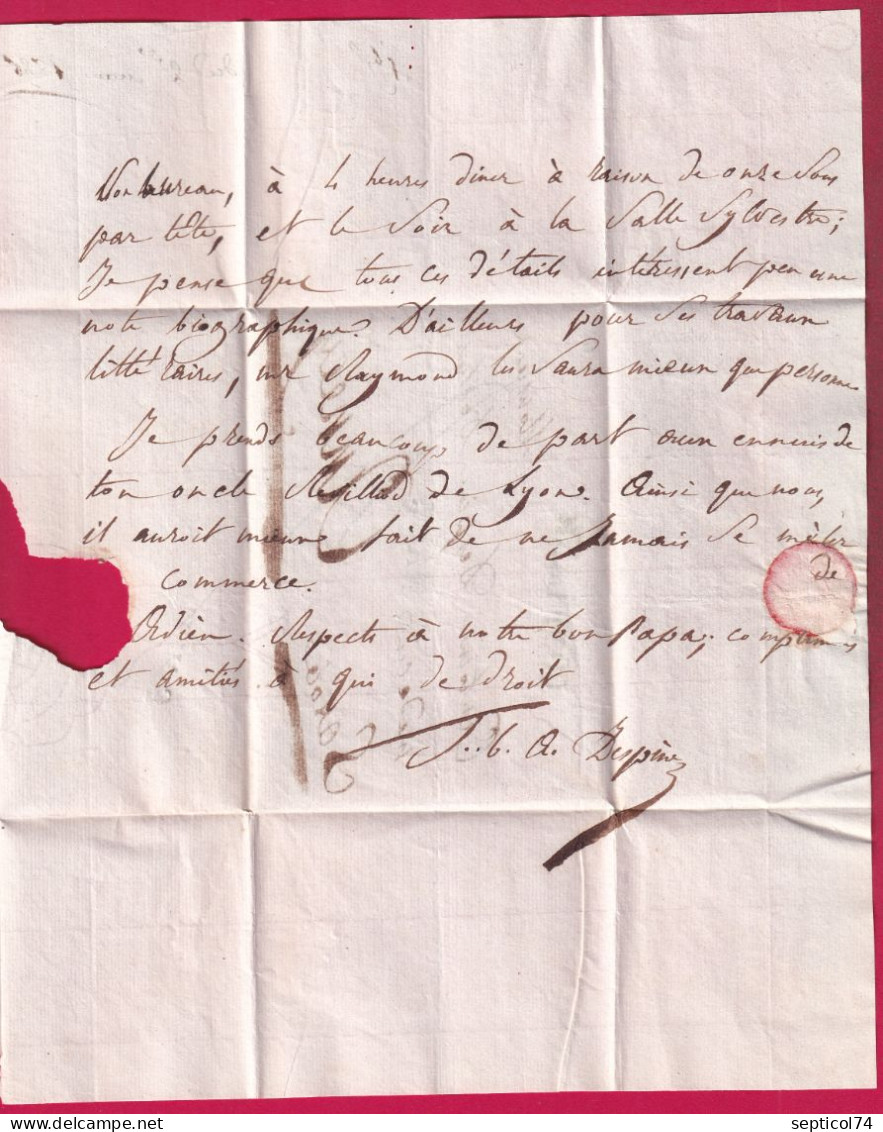 son bureau, à 4 heures diner à raison de onze sous
par tête, et le soir à la salle Sylvestre;
Je pense que tous ces détails intéressent peu une
note biographique. D'ailleurs pour ses travaux
littéraires, mr Raymond les saura mieux que personne
Je prends beaucoup de part aux ennuis de
ton oncle de Lyon. Ainsi que nous,
il auroit mieux fait de ne jamais se mêler
de
commerce.
Adieu. Respects à notre bon Papa; complimens
et amitiés à qui de droit
J. b. A. Despine
delcampe.net
septicol74